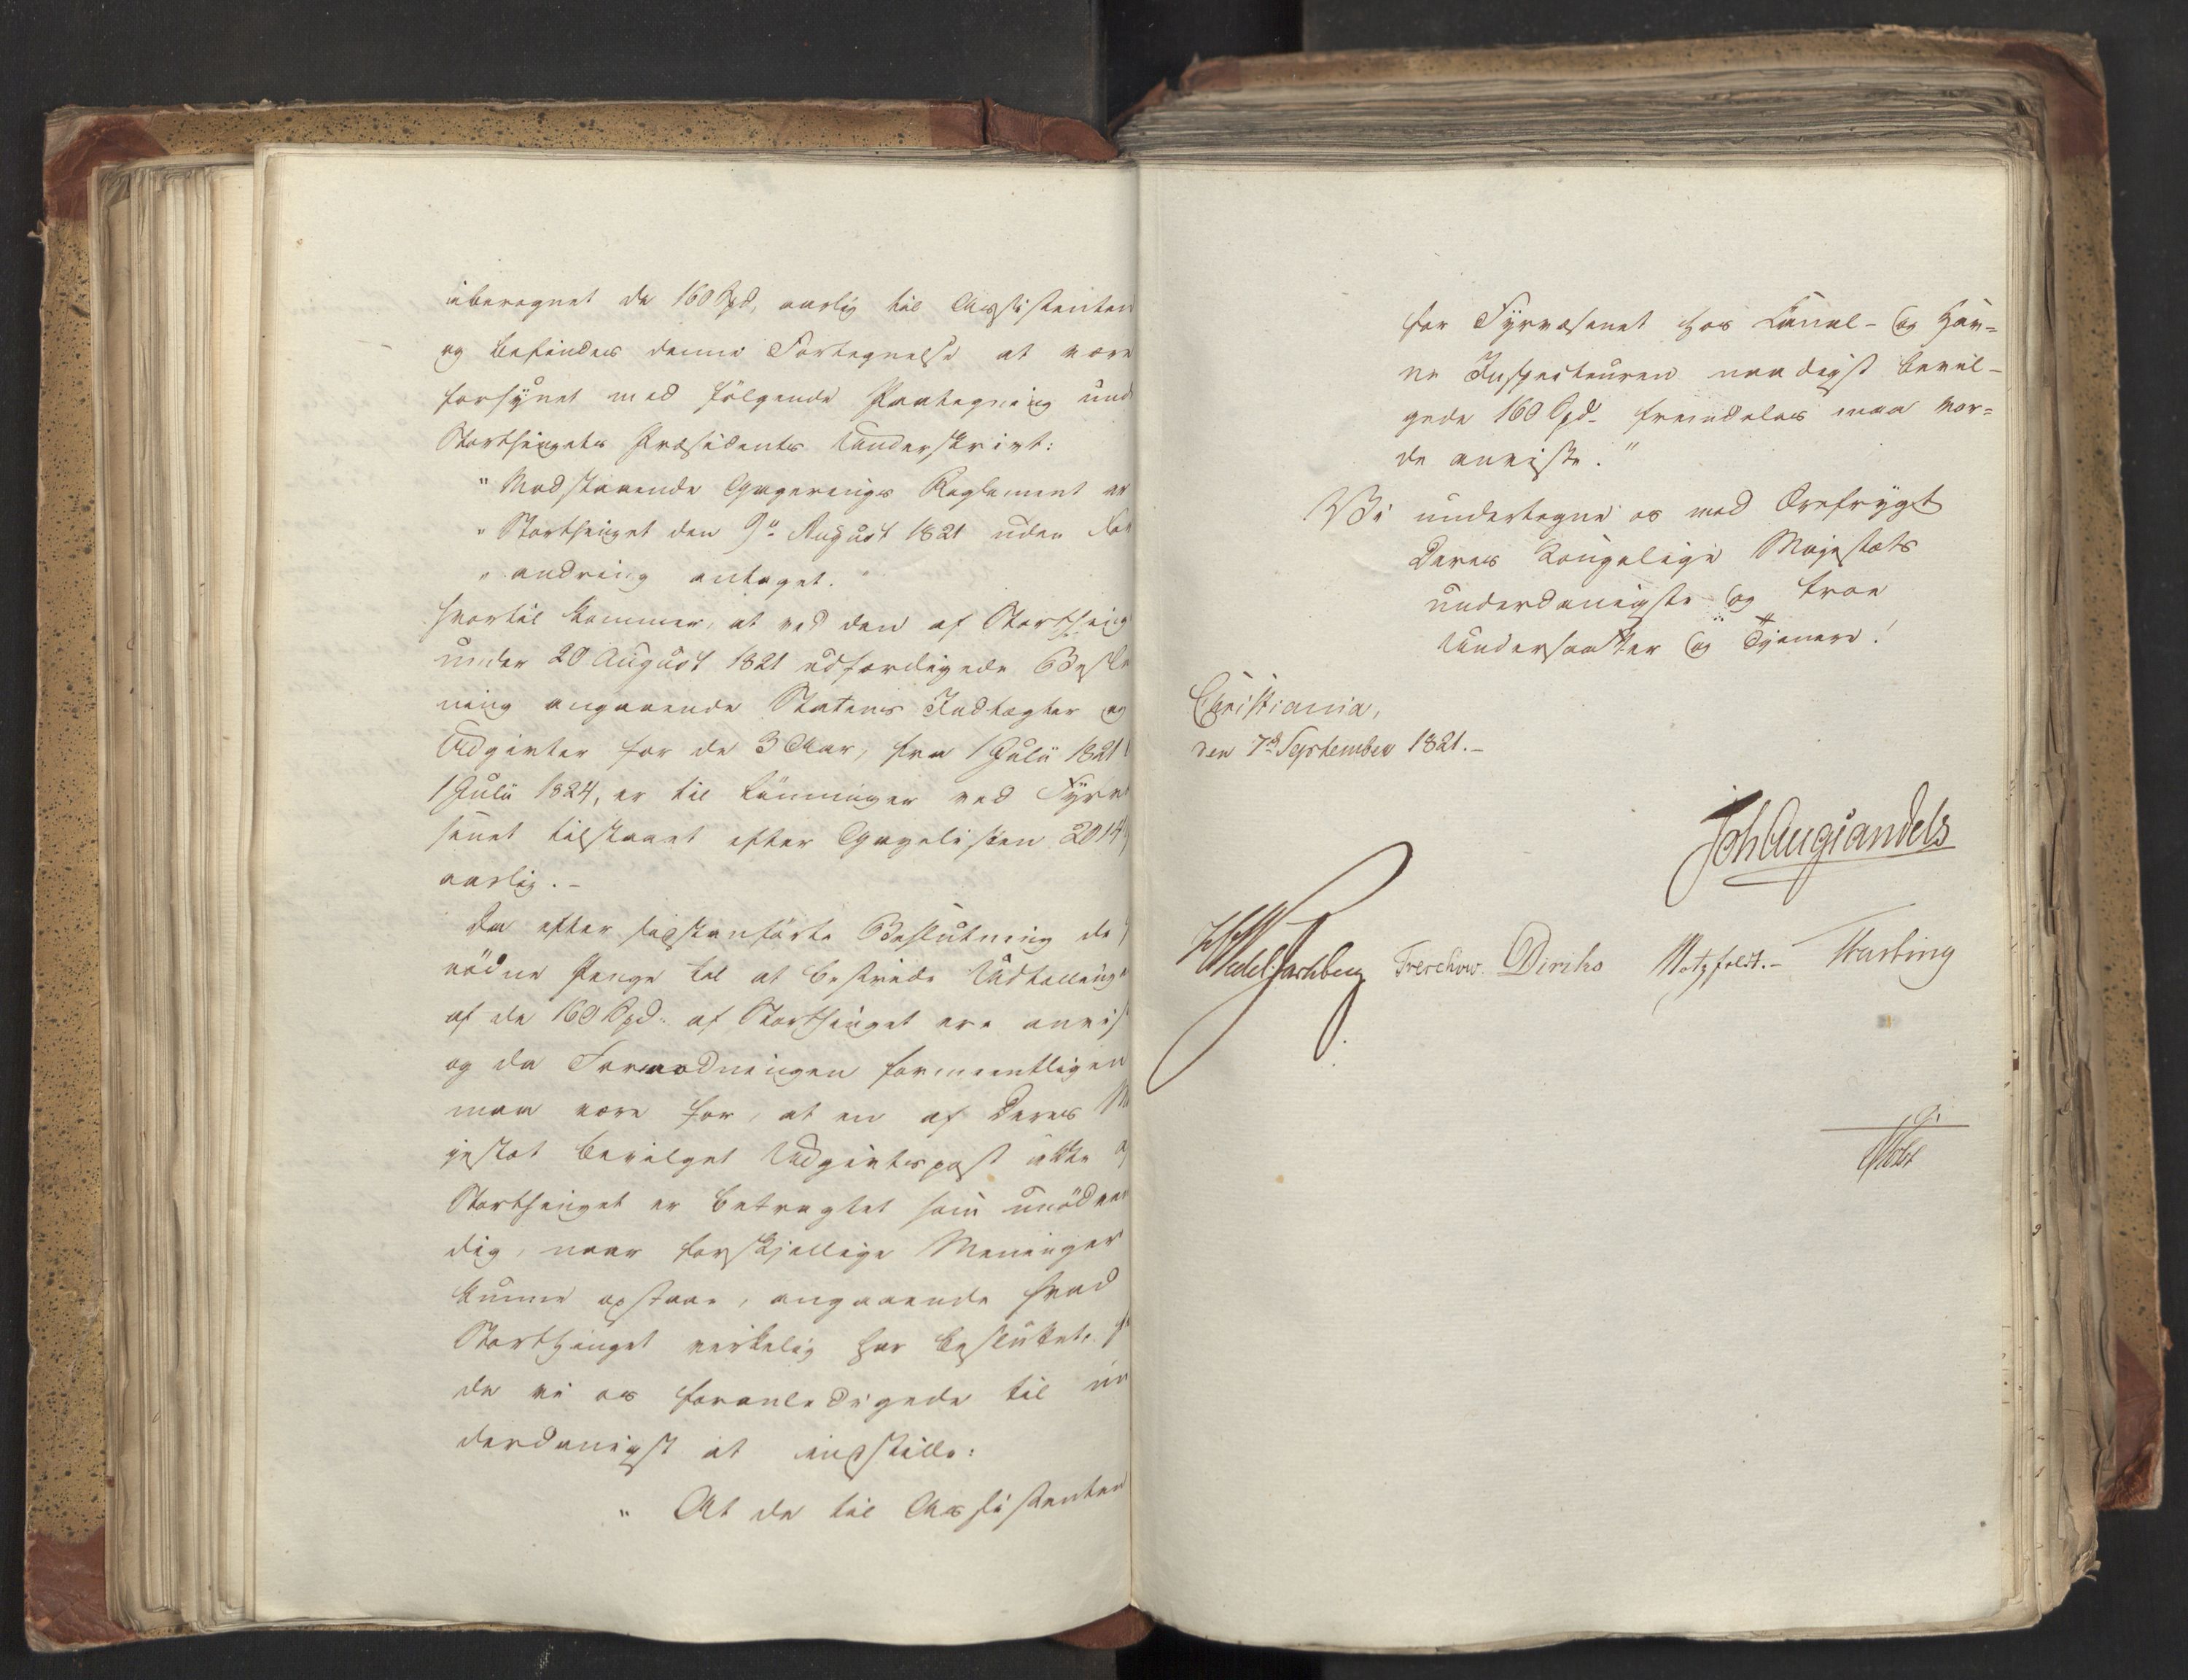 iberegnet de 160 Spd, aarlig til Assistenten
og befindes denne Fortegnelse at være
forsynet med følgende Paategning und
Storthingets Præsidents Underskrivt:
"Modstaaende Gagerings Reglement er
"Storthinget den 9de August 1821 uden For
"andring antaget."
hvortil kommer, at ved den af Storthing
under 20 August 1821 udfærdigede Beslu
ning angaaende Statens Indtægter og
Udgivter for de 3 Aar, fra 1 Julii 1821
1 Julii 1824, er til Lönninger ved Fyrvæ
senet tilstaaet efter Gagelisten 2014
aarlig.-
Da efter sidstanförte Beslutning de
nödne Penge til at bestride Udtællinge
af de 160 Spd. af Storthinget ere anvis
og da Formodningen formeentligen
maa være for, at en af Deres Ma
jestæt bevilget Udgivtspost ikke a
Storthinget er betragtet som unödven
dig, naar forskjellige Meninger
kunne opstaae, angaaende hvad
Storthinget virkelig har besluttet, f
de vi os foranledigede til un
derdanigst at indstille:
" At de til Assistenten
for Fyrvæsenet hos Canal- og Hav=
ne Inspecteuren naadigst bevil-
gede 160 Spd. fremdeles maa vor=
de anviste."
Vi undertegne os med Ærefrygt
Deres Kongelige Majestæts
underdanigste og troe
Undersaatter og Tjenere!
Christiania,
den 7de September 1821.-
Joh Aug Sandels
HWedel Jarlsberg Treschow. Diriks Motzfeldt.- Fasting
Holst